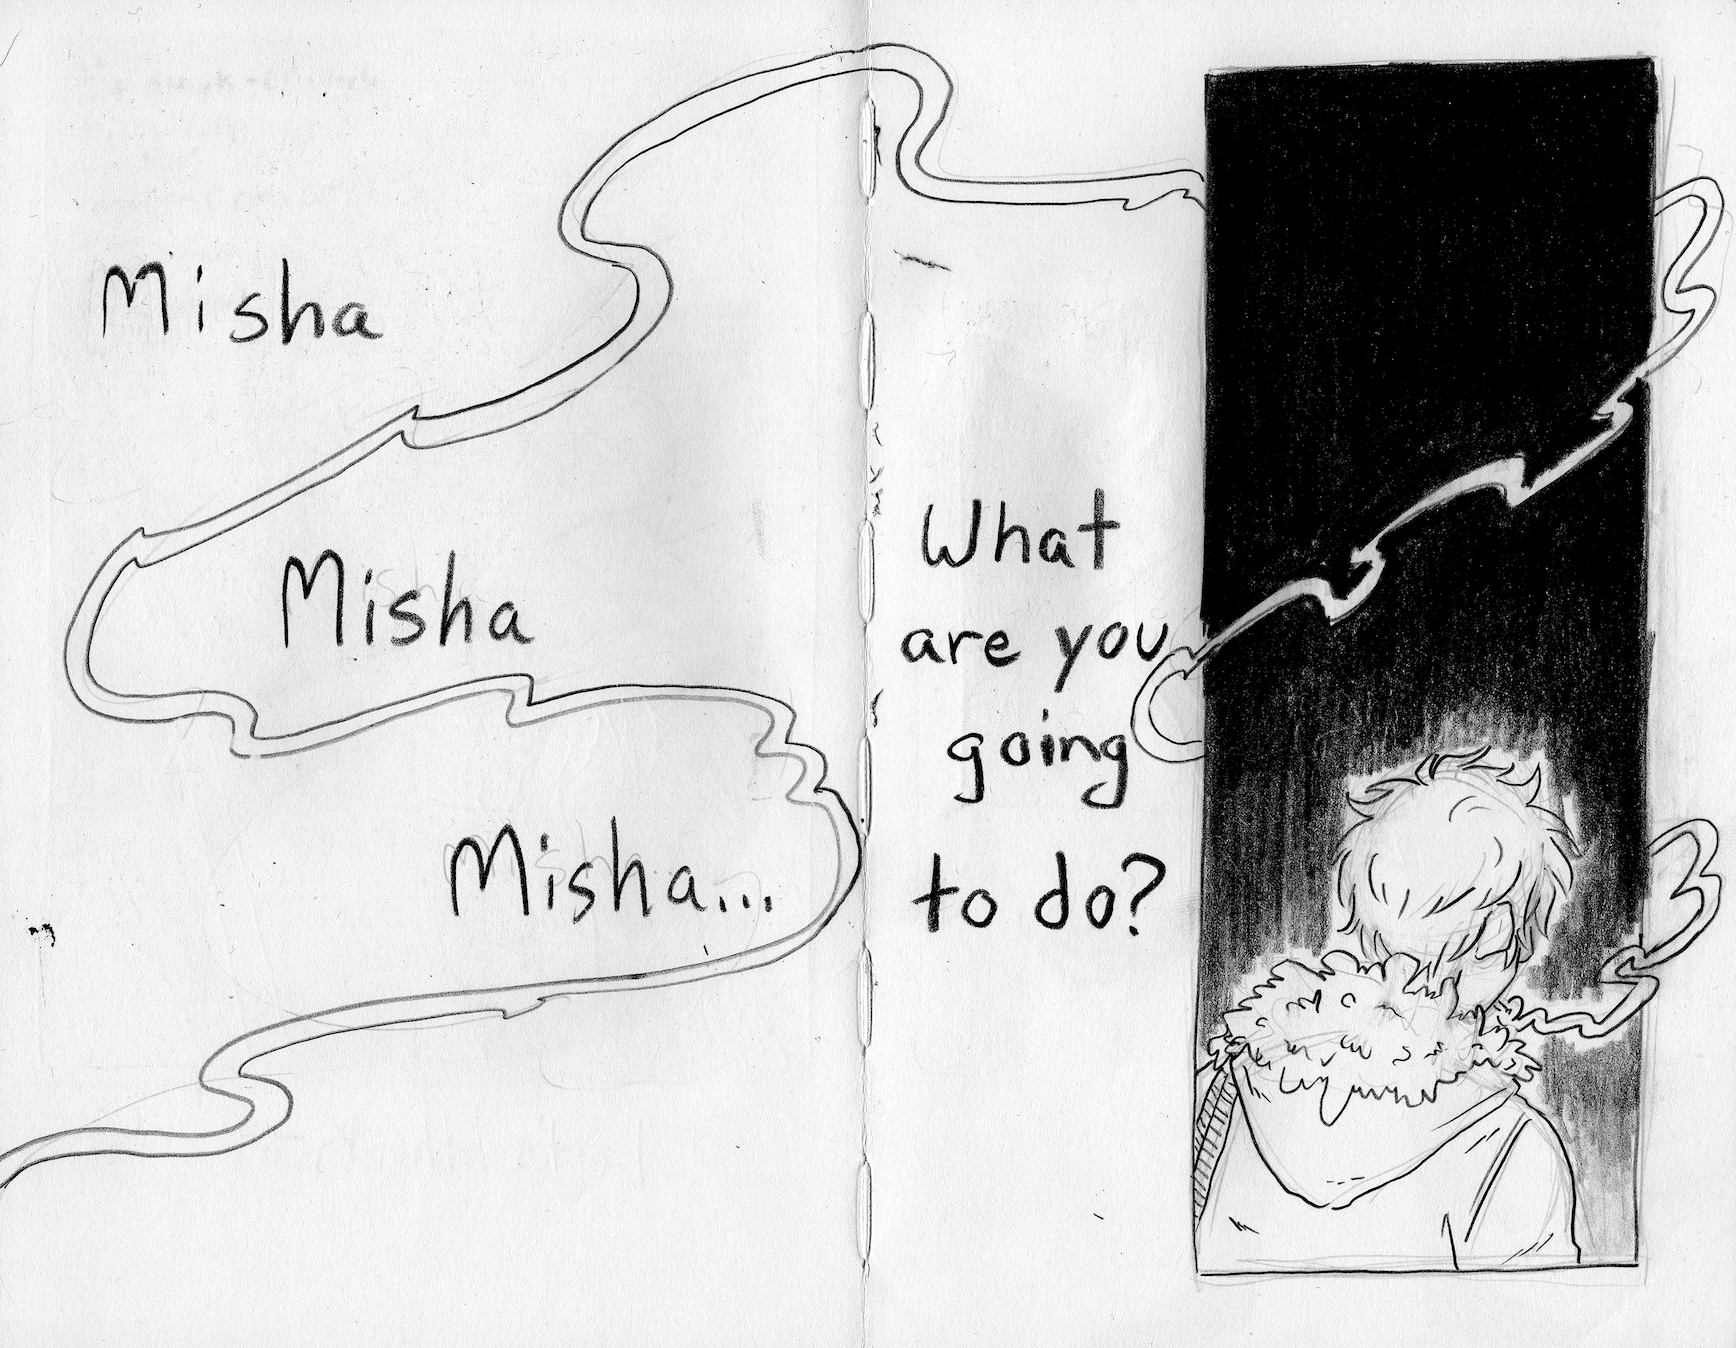 Misha
Misha
Misha...
What
are you
going
to do?